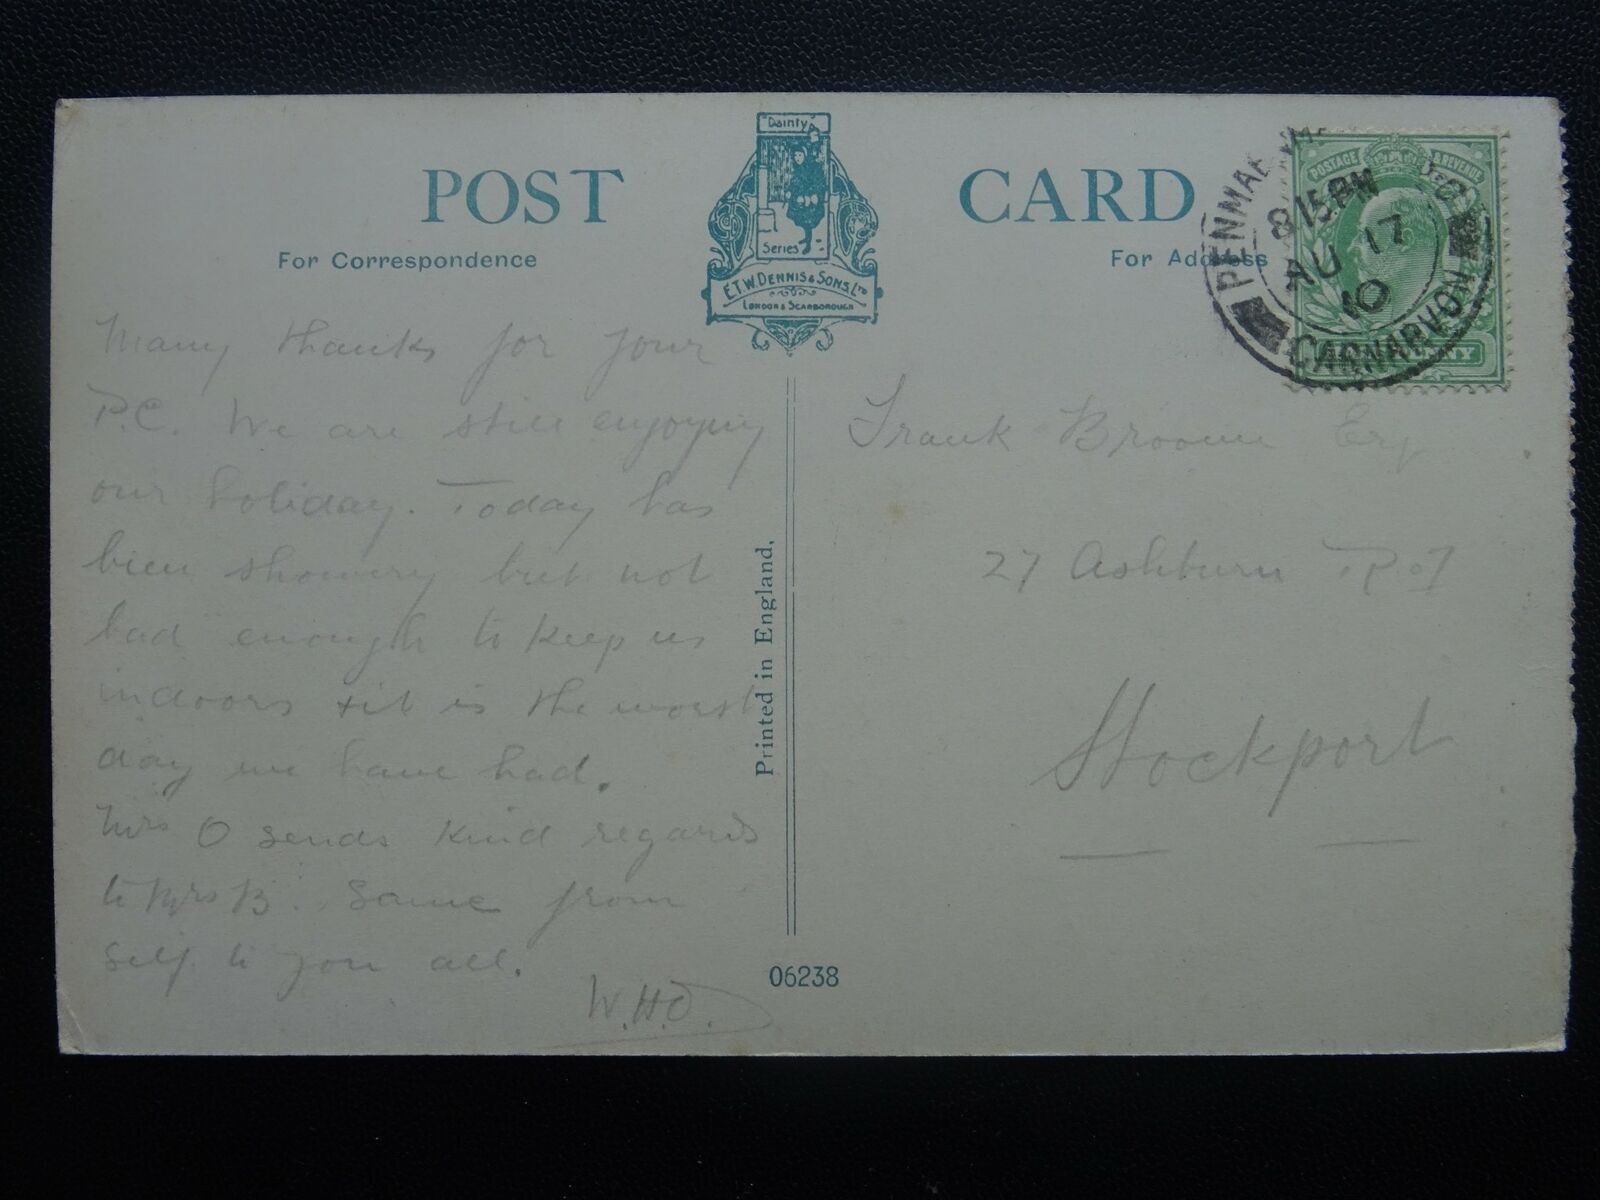 POST CARD
"Dainty"
Series
E.T.W. DENNIS & SONS, LTD
LONDON & SCARBOROUGH
For Correspondence
For Address
POSTAGE REVENUE
8.15 PM
AU 17
10
CARNARVON
Many thanks for your
P.C. We are still enjoying
our holiday. Today has
been showery but not
bad enough to keep us
indoors & it is the worst
day we have had.
Mrs O sends kind regards
to Mrs B. Same from
self to you all.
W.H.O.
Printed in England.
06238
Frank Broome Esq
27 Ashburn Rd
Stockport